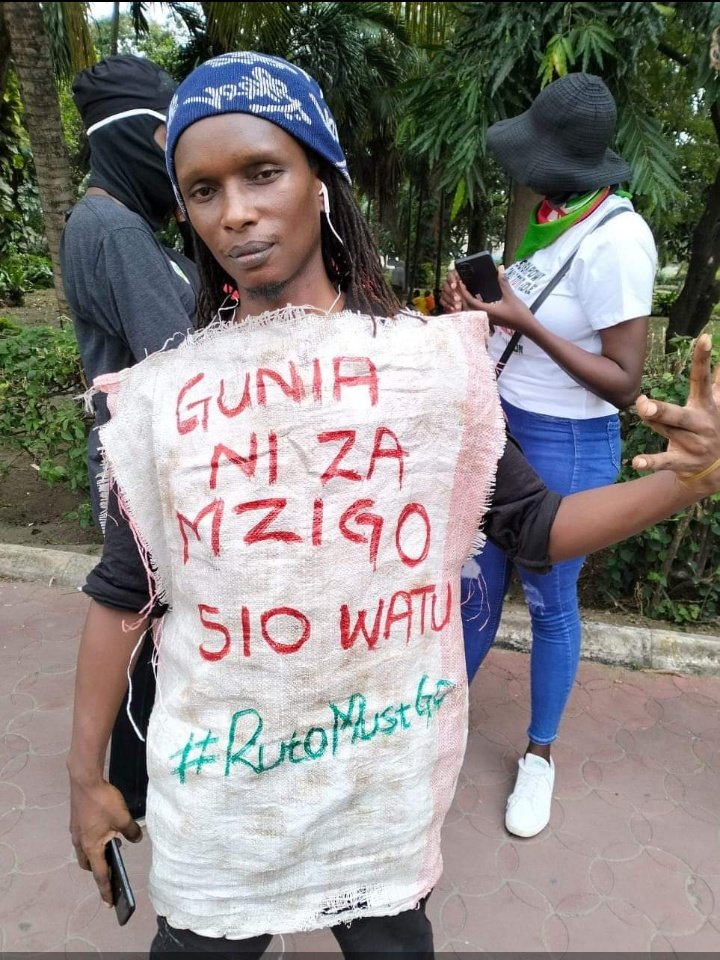 GUNIA
NI ZA
MZIGO
SIO WATU
#RutoMustGo